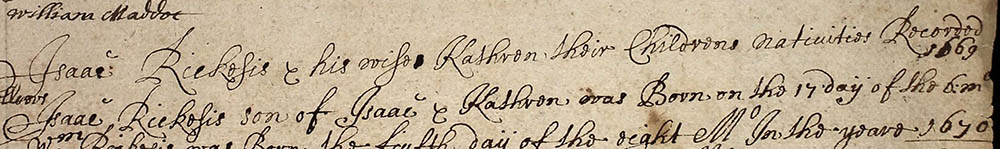 William Maddoc
Isaac Rickesis & his wife Kathren their Childrens nativities Recorded
1669
Isaac Rickesis son of Isaac & Kathren was Born on the 17 day of the 6: mo
Wm Rickesis was Born the fourth day of the eight Mo In the yeare 1670